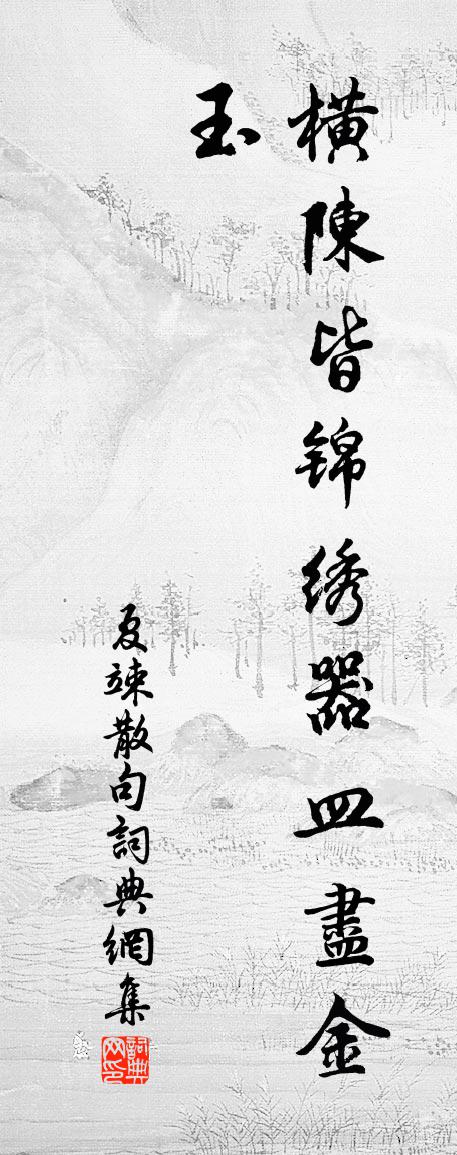 橫陳皆錦绣器皿盡金
玉
夏竦散句詞典網集
詞典网印